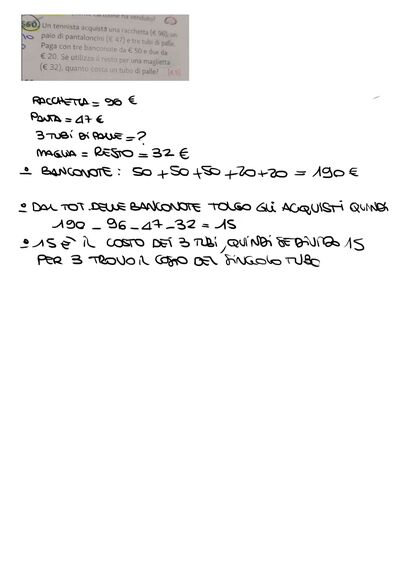 560. Un tennista acquista una racchetta (€ 96), un
paio di pantaloncini (€ 47) e tre tubi di palle.
Paga con tre banconote da € 50 e due da
€ 20. Se utilizza il resto per una maglietta
(€ 32), quanto costa un tubo di palle? [€ 5]
RACCHETTA = 96 €
PANTA = 47 €
3 TUBI DI PALLE = ?
MAGLIA = RESTO = 32 €
BANCONOTE : 50 + 50 + 50 + 20 + 20 = 190 €
DAL TOT. DELLE BANCONOTE TOLGO GLI ACQUISTI QUINDI
190 - 96 - 47 - 32 = 15
15 È IL COSTO DEI 3 TUBI, QUINDI SE DIVIDO 15
PER 3 TROVO IL COSTO DEL SINGOLO TUBO